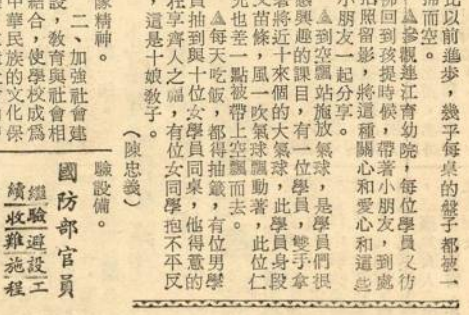 比以前進步，幾乎每桌的盤子都被一
掃而空。
▲參觀連江育幼院，每位學員又彷
彿回到孩提時候，帶著小朋友，到處
拍照留影，將這種關心和愛心和這些
小朋友一起分享。
▲到空飄站施放氣球，是學員們很
感興趣的課目，有一位學員，雙手拿
著將近十來個的大氣球，此學員身段
又苗條，風一吹氣球飄動著，此位仁
兄也差一點被帶上空飄而去。
▲每天吃飯，都得抽籤，有位男學
員抽到與十位女學員同桌，他得意的
狂享齊人之福，有位女同學抱不平反
，這是十娘教子。
（陳忠義）
精神。
二、加強社會建
設，教育與社會相
結合，使學校成爲
中華民族的文化保
驗設備。
國防部官員
繼驗避設工
續收難施程